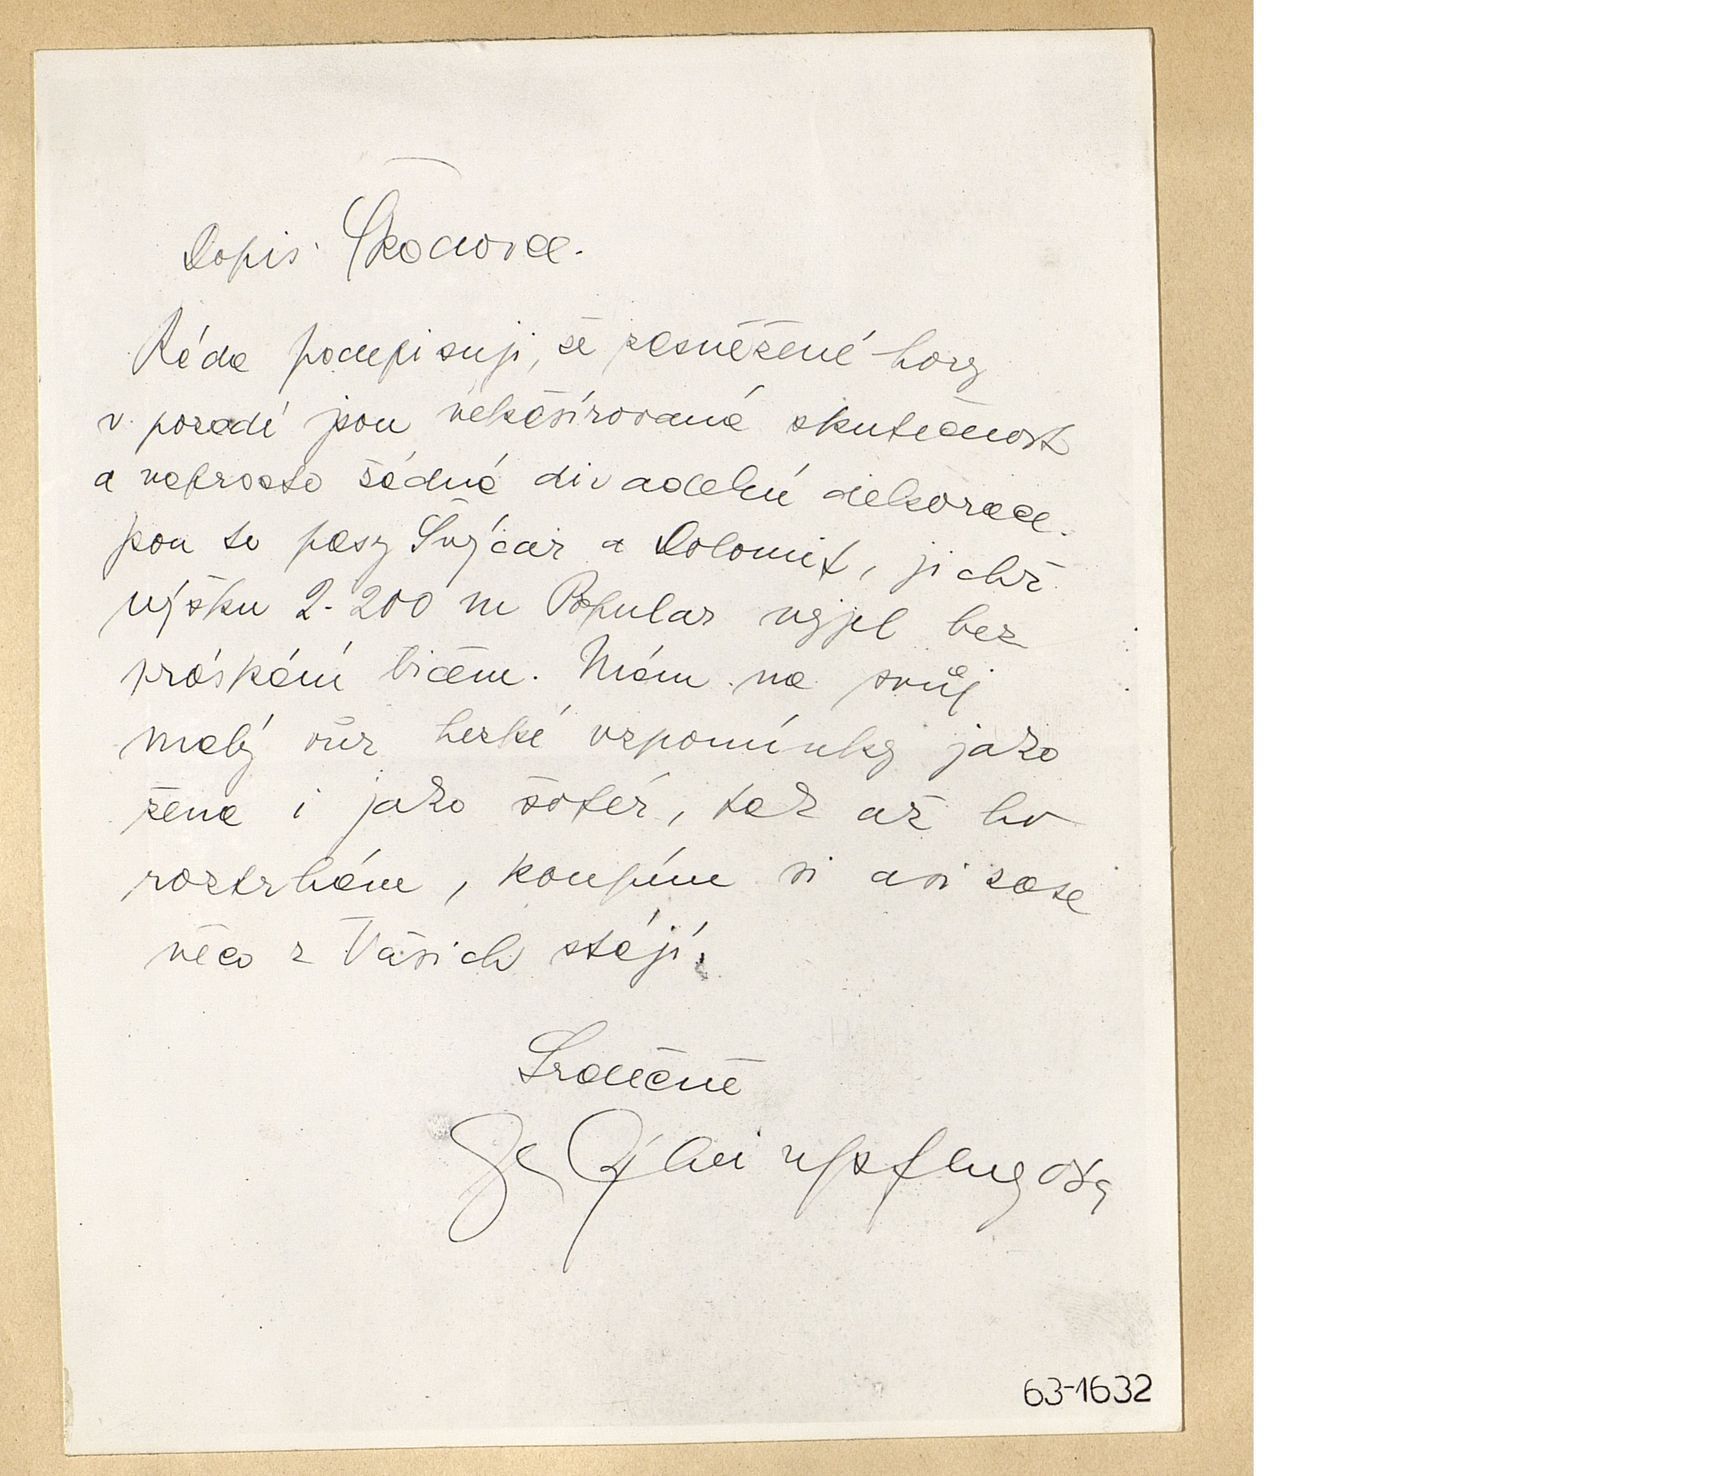 Dopis Škodovce.
Ráda podepisuji, že zasněžené hory
v pozadí jsou nekašírovaná skutečnost
a naprosto žádná divadelní dekorace.
Jsou to pasy Švýcar a Dolomit, jichž
výšku 2-200 m Popular vyjel bez
práskání bičem. Mám na svůj
malý vůz hezké vzpomínky jako
žena i jako šofér, tak až ho
roztrhám, koupím si asi zase
něco z Vašich stájí.
Srdečně
Scheinpflugová
63-1632